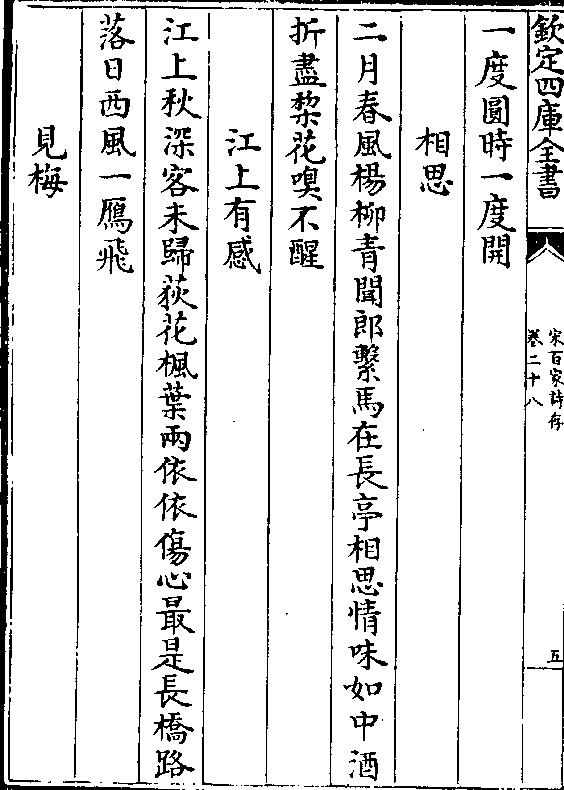 欽定四庫全書
宋百家詩存
卷二十八
五
一度圓時一度開
相思
二月春風楊柳青聞郎繫馬在長亭相思情味如中酒
折盡棃花嗅不醒
江上有感
江上秋深客未歸荻花楓葉兩依依傷心最是長橋路
落日西風一鴈飛
見梅